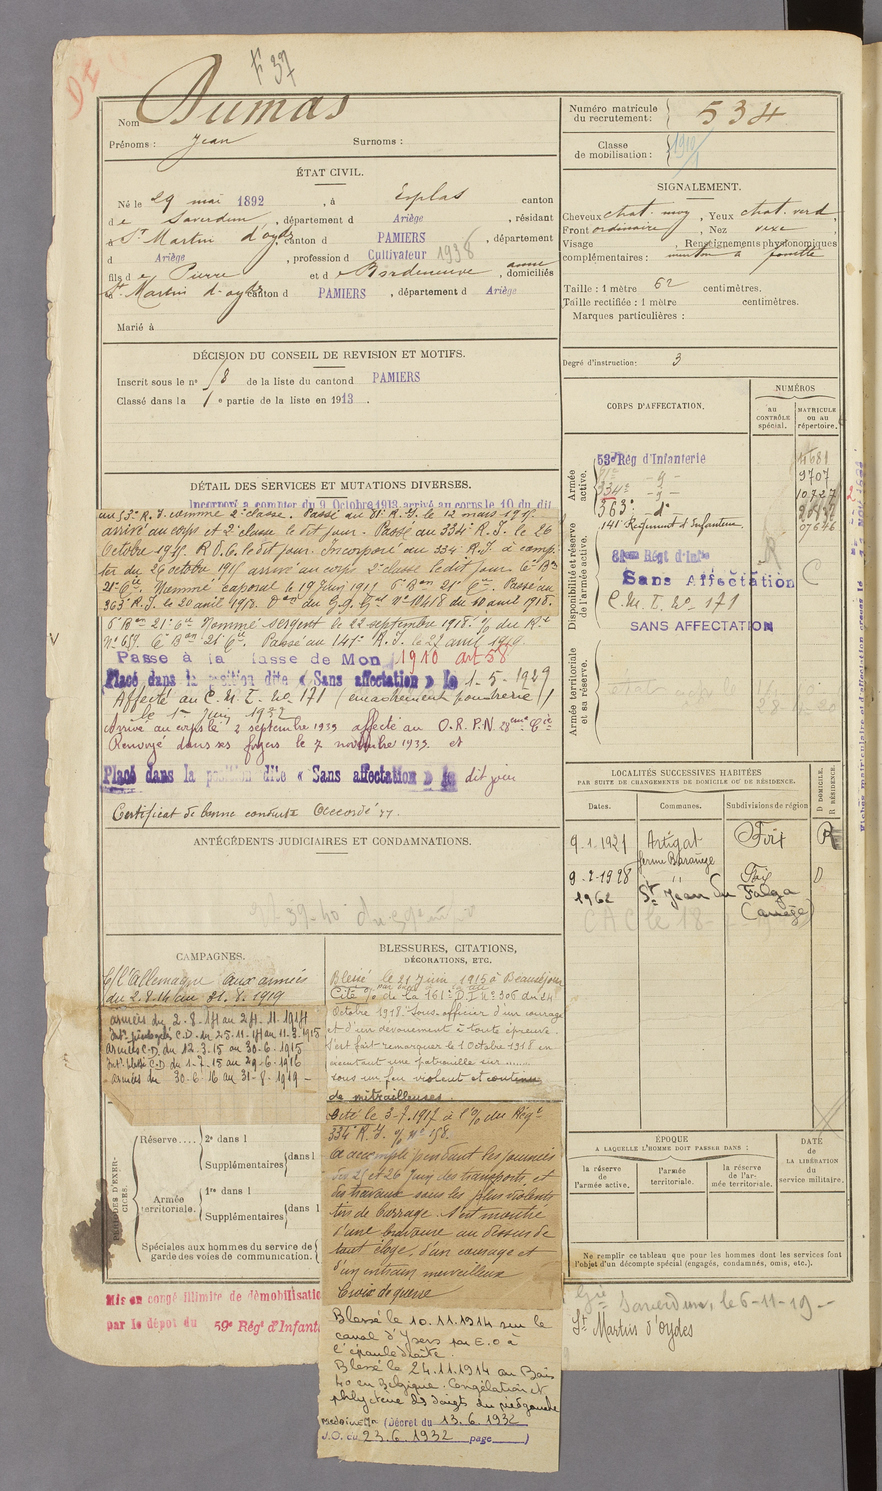 F 37
Nom Dumas
Prénoms : Jean Surnoms :
ÉTAT CIVIL.
Né le 29 mai 1892 , à Esplas canton
de Saverdun , département d Ariège , résidant
à St Martin d'oydes canton d PAMIERS , département
d Ariège , profession d Cultivateur 1938
fils de Pierre et de Bordeneuve anne , domiciliés
St Martin d'oydes canton d PAMIERS , département d Ariège
Marié à
DÉCISION DU CONSEIL DE REVISION ET MOTIFS.
Inscrit sous le n° 58 de la liste du canton d PAMIERS
Classé dans la 1e partie de la liste en 1913 .
DÉTAIL DES SERVICES ET MUTATIONS DIVERSES.
Incorporé à compter du 9 Octobre 1913 arrivé au corps le 10 du dit
au 53e R.I. comme 2e classe. Passé au 81e R.I. le 12 mars 1915
arrivé au corps et 2e classe le dit jour. Passé au 334e R.I. le 26
Octobre 1915. R.D.C. le dit jour. Incorporé au 334 R.I. à comp-
ter du 26 octobre 1915 arrivé au corps 2e classe le dit jour 6e Bon
21e Cie. Nommé caporal le 19 Juin 1915 6e Bon 21e Cie. Passé au
363e R.I. le 20 avril 1918. Don du G.Q. Gal No 10418 du 10 avril 1918.
6e Bon 21e Cie Nommé Sergent le 22 septembre 1918. O/ du Rt
No 657. 6e Bon 21e Cie. Passé au 141e R.I. le 22 avril 1919
Passé à la classe de Mon 1910 art 58
Placé dans la position dite « Sans affectation » le 1-5-1929
Affecté au C.M.I. No 171 (détachement poudrerie)
le 1er Juin 1932
Arrivé au corps le 2 septembre 1939 affecté au O.R.P.N. 28eme Cie
Renvoyé dans ses foyers le 7 novembre 1939 et
Placé dans la position dite « Sans affectation » le dit jour
Certificat de bonne conduite Accordé
ANTÉCÉDENTS JUDICIAIRES ET CONDAMNATIONS.
CAMPAGNES.
C/ l'Allemagne aux armées
du 2.8.14 au 31.8.1919
armées du 2-8-14 au 24-11-1914
Int. C.D. du 25-11-14 au 11-3-1915
armées C.D. du 12-3-15 au 30-6-1915
Int. blessé C.D. du 1-7-15 au 29-6-1916
armées du 30-6-16 au 31-8-1919 -
BLESSURES, CITATIONS,
DÉCORATIONS, ETC.
Blessé le 21 juin 1915 à Beauséjour
Cité O/ de la 161e D.I. No 306 du 24
Octobre 1918. Sous-officier d'un courage
et d'un dévouement à toute épreuve.
S'est fait remarquer le 1 Octobre 1918 en
exécutant une patrouille sur ........
sous un feu violent et continu
de mitrailleuses.
Cité le 3-7-1917 à l'O/ du Régt
334e R.I. O/ No 158.
A accompli pendant les journées
des 25 et 26 Juin des transports, et
des travaux sous les plus violents
tirs de barrage. S'est montré
d'une bravoure au dessus de
tout éloge, d'un courage et
d'un entrain merveilleux
Croix de guerre
Blessé le 10.11.1914 sur le
canal d'Ysers par E.O à
l'épaule droite.
Blessé le 24.11.1914 au Bois
40 en Belgique. Congélation et
phlyctène des doigts du pied gauche
(Décret du 13.6.1932
J.O. du 23.6.1932 page )
PÉRIODES D'EXER-
CICES.
Réserve.... 2e dans l
Supplémentaires dans l
Armée territoriale. 1re dans l
Supplémentaires dans l
Spéciales aux hommes du service de
garde des voies de communication.
Mis en congé illimité de démobilisatio
par le dépôt du 59e Régt d'Infant
Numéro matricule
du recrutement : 534
Classe
de mobilisation : 1910/1
SIGNALEMENT.
Cheveux chat. moy , Yeux chat. verd
Front ordinaire , Nez vexe ,
Visage , Renseignements physionomiques
complémentaires : menton à fossette
Taille : 1 mètre 62 centimètres.
Taille rectifiée : 1 mètre centimètres.
Marques particulières :
Degré d'instruction : 3
CORPS D'AFFECTATION.
NUMÉROS
au CONTRÔLE spécial.
MATRICULE ou au répertoire.
Armée active.
53e Rég d'Infanterie
81e - d° - 9707
334e - d° - 10.727
363e - d°
141e Régiment d'Infanterie 07626
Disponibilité et réserve de l'armée active.
81eme Régt d'Infie
Sans Affectation
C.M.I. No 171
SANS AFFECTATION
R
C
Armée territoriale et sa réserve.
LOCALITÉS SUCCESSIVES HABITÉES
PAR SUITE DE CHANGEMENTS DE DOMICILE OU DE RÉSIDENCE.
Dates. Communes. Subdivisions de région D DOMICILE. R RÉSIDENCE.
9-1-1921 Artigat Foix R
ferme Barange
9-2-1928 " Foix D
1962 St Jean du Falga
(Ariège)
ÉPOQUE
A LAQUELLE L'HOMME DOIT PASSER DANS :
la réserve de l'armée active.
l'armée territoriale.
la réserve de l'armée territoriale.
DATE de LA LIBÉRATION du service militaire.
Ne remplir ce tableau que pour les hommes dont les services font
l'objet d'un décompte spécial (engagés, condamnés, omis, etc.).
Gie Saverdun, le 6-11-19 -
St Martin d'oydes